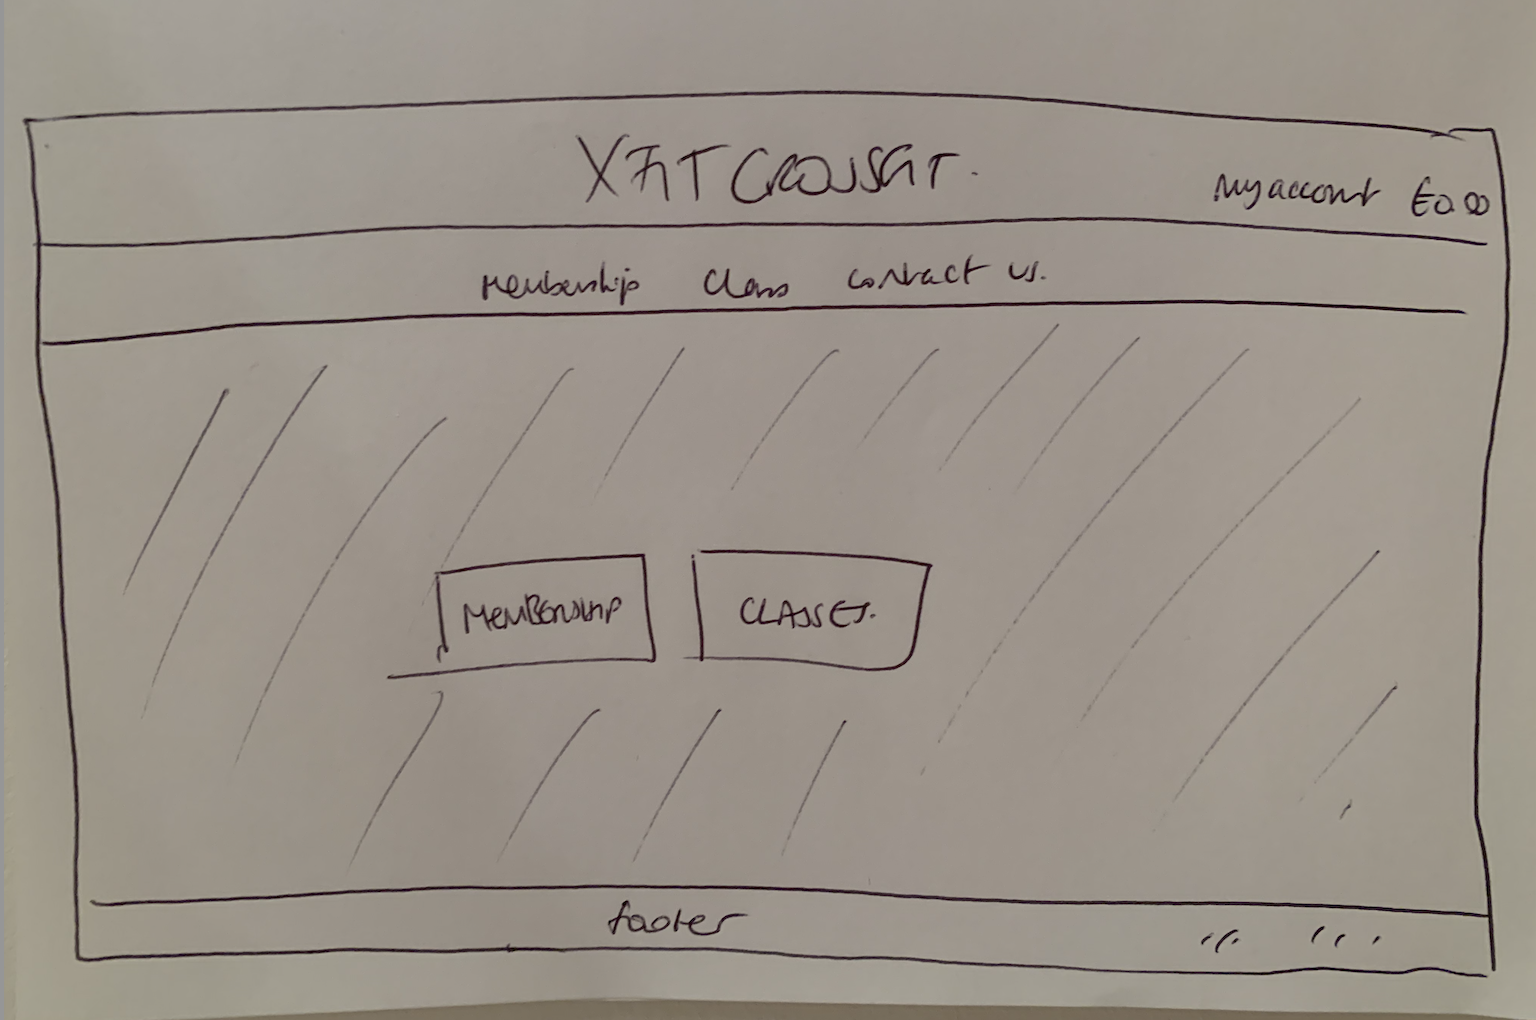 XFIT CROSSFIT.
My account £0.00
Membership Class Contact us.
MEMBERSHIP CLASSES.
footer